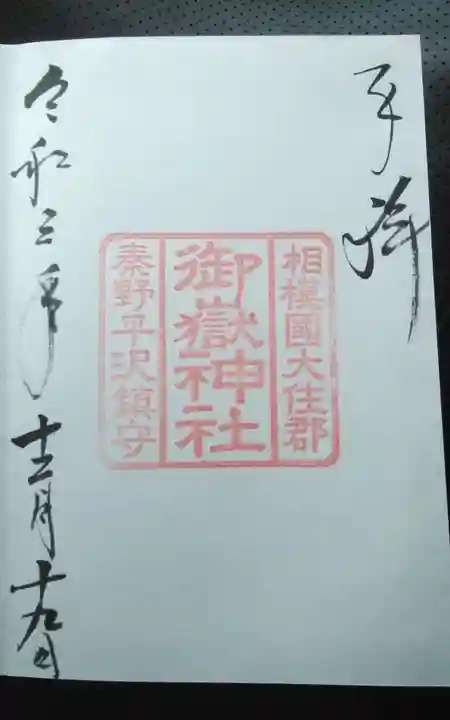 奉拝
相模國大住郡
御嶽神社
秦野平沢鎮守
令和三年十二月十九日